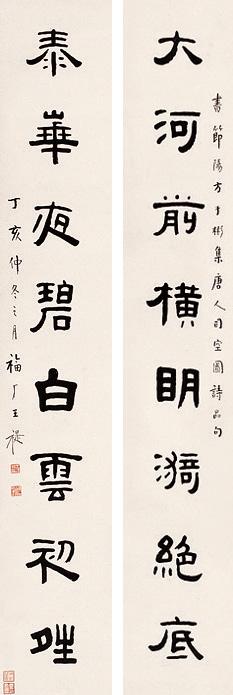 大河前橫眀漪絕底
書節陽方于彬集唐人司空圖詩品句
泰華夜碧白雲初夝
丁亥仲冬之月福厂王禔